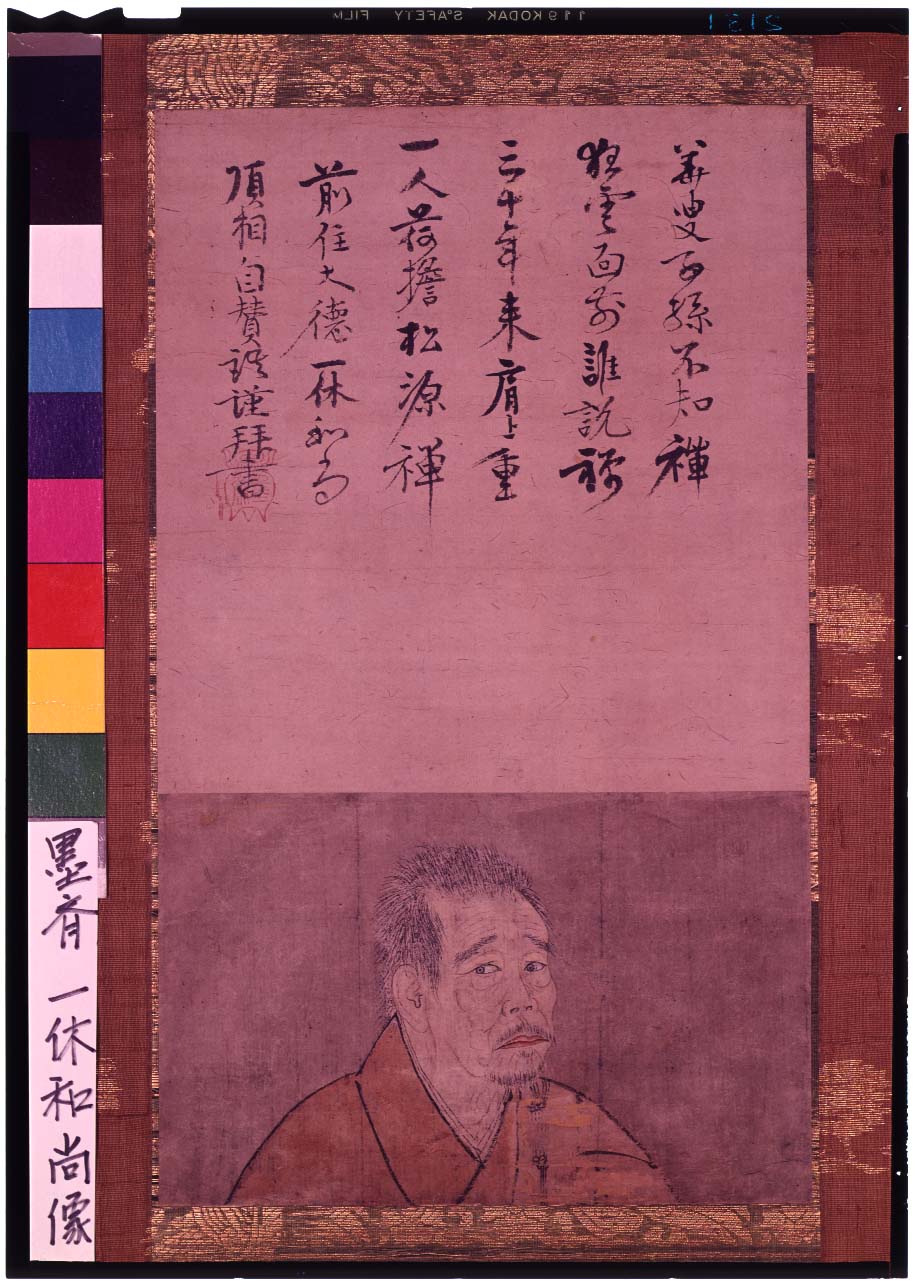 華叟子孫不知禅
狂雲面前誰説禅
三十年来肩上重
一人荷擔松源禅
前住大徳一休和尚
頂相自賛語謹拝書
墨斉 一休和尚像
KODAK SAFETY FILM